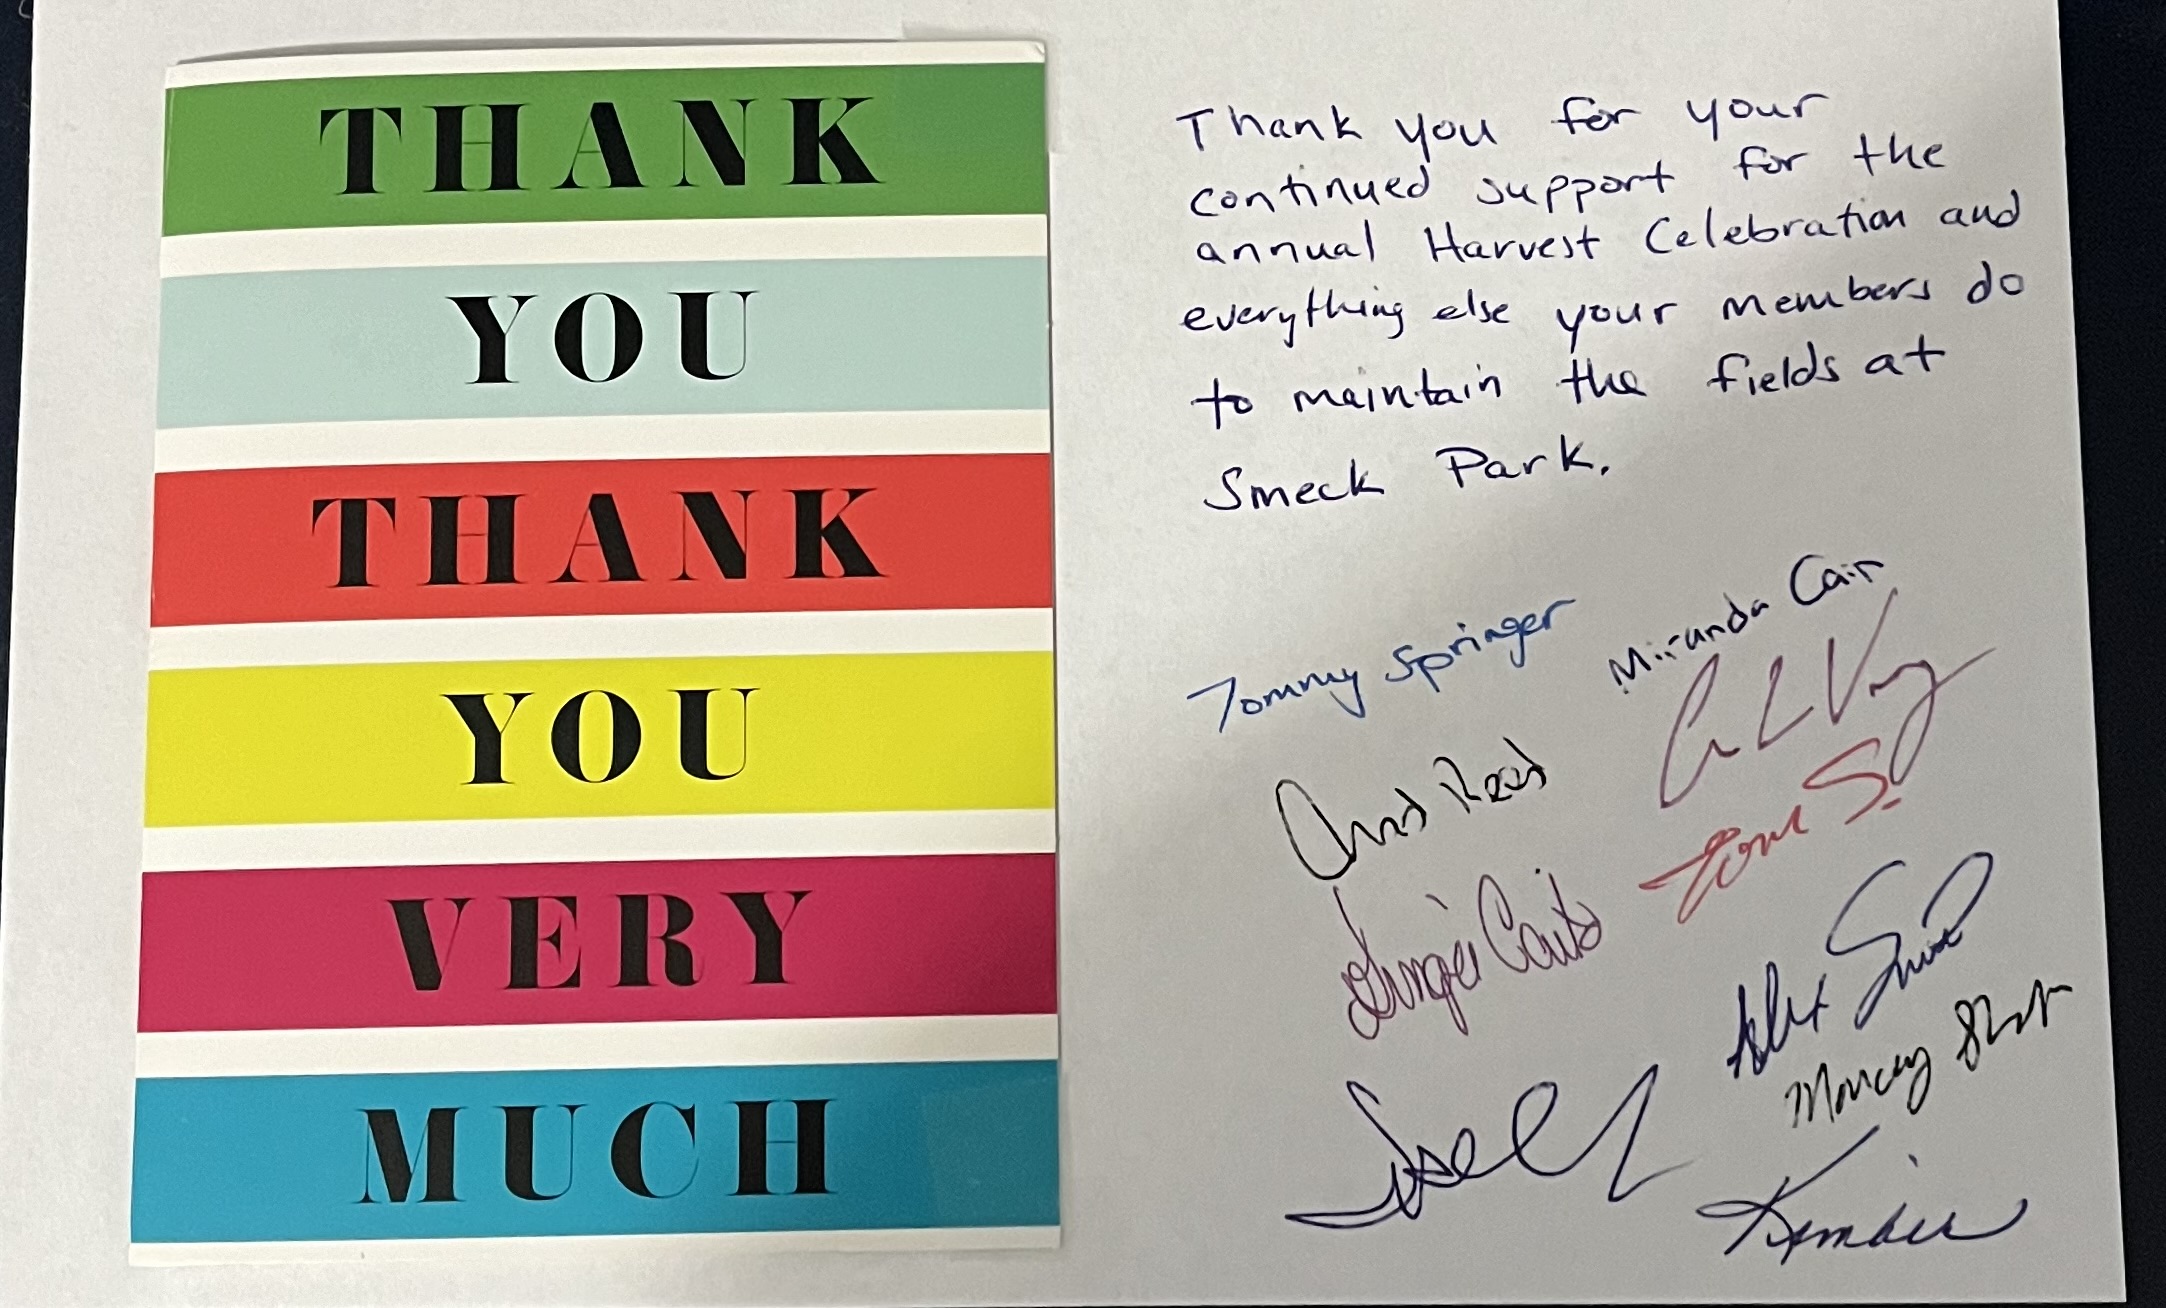 THANK
YOU
THANK
YOU
VERY
MUCH
Thank you for your
continued support for the
annual Harvest Celebration and
everything else your members do
to maintain the fields at
Smeck Park.
Tommy Springer
Miranda Cain
Alex
Kimber